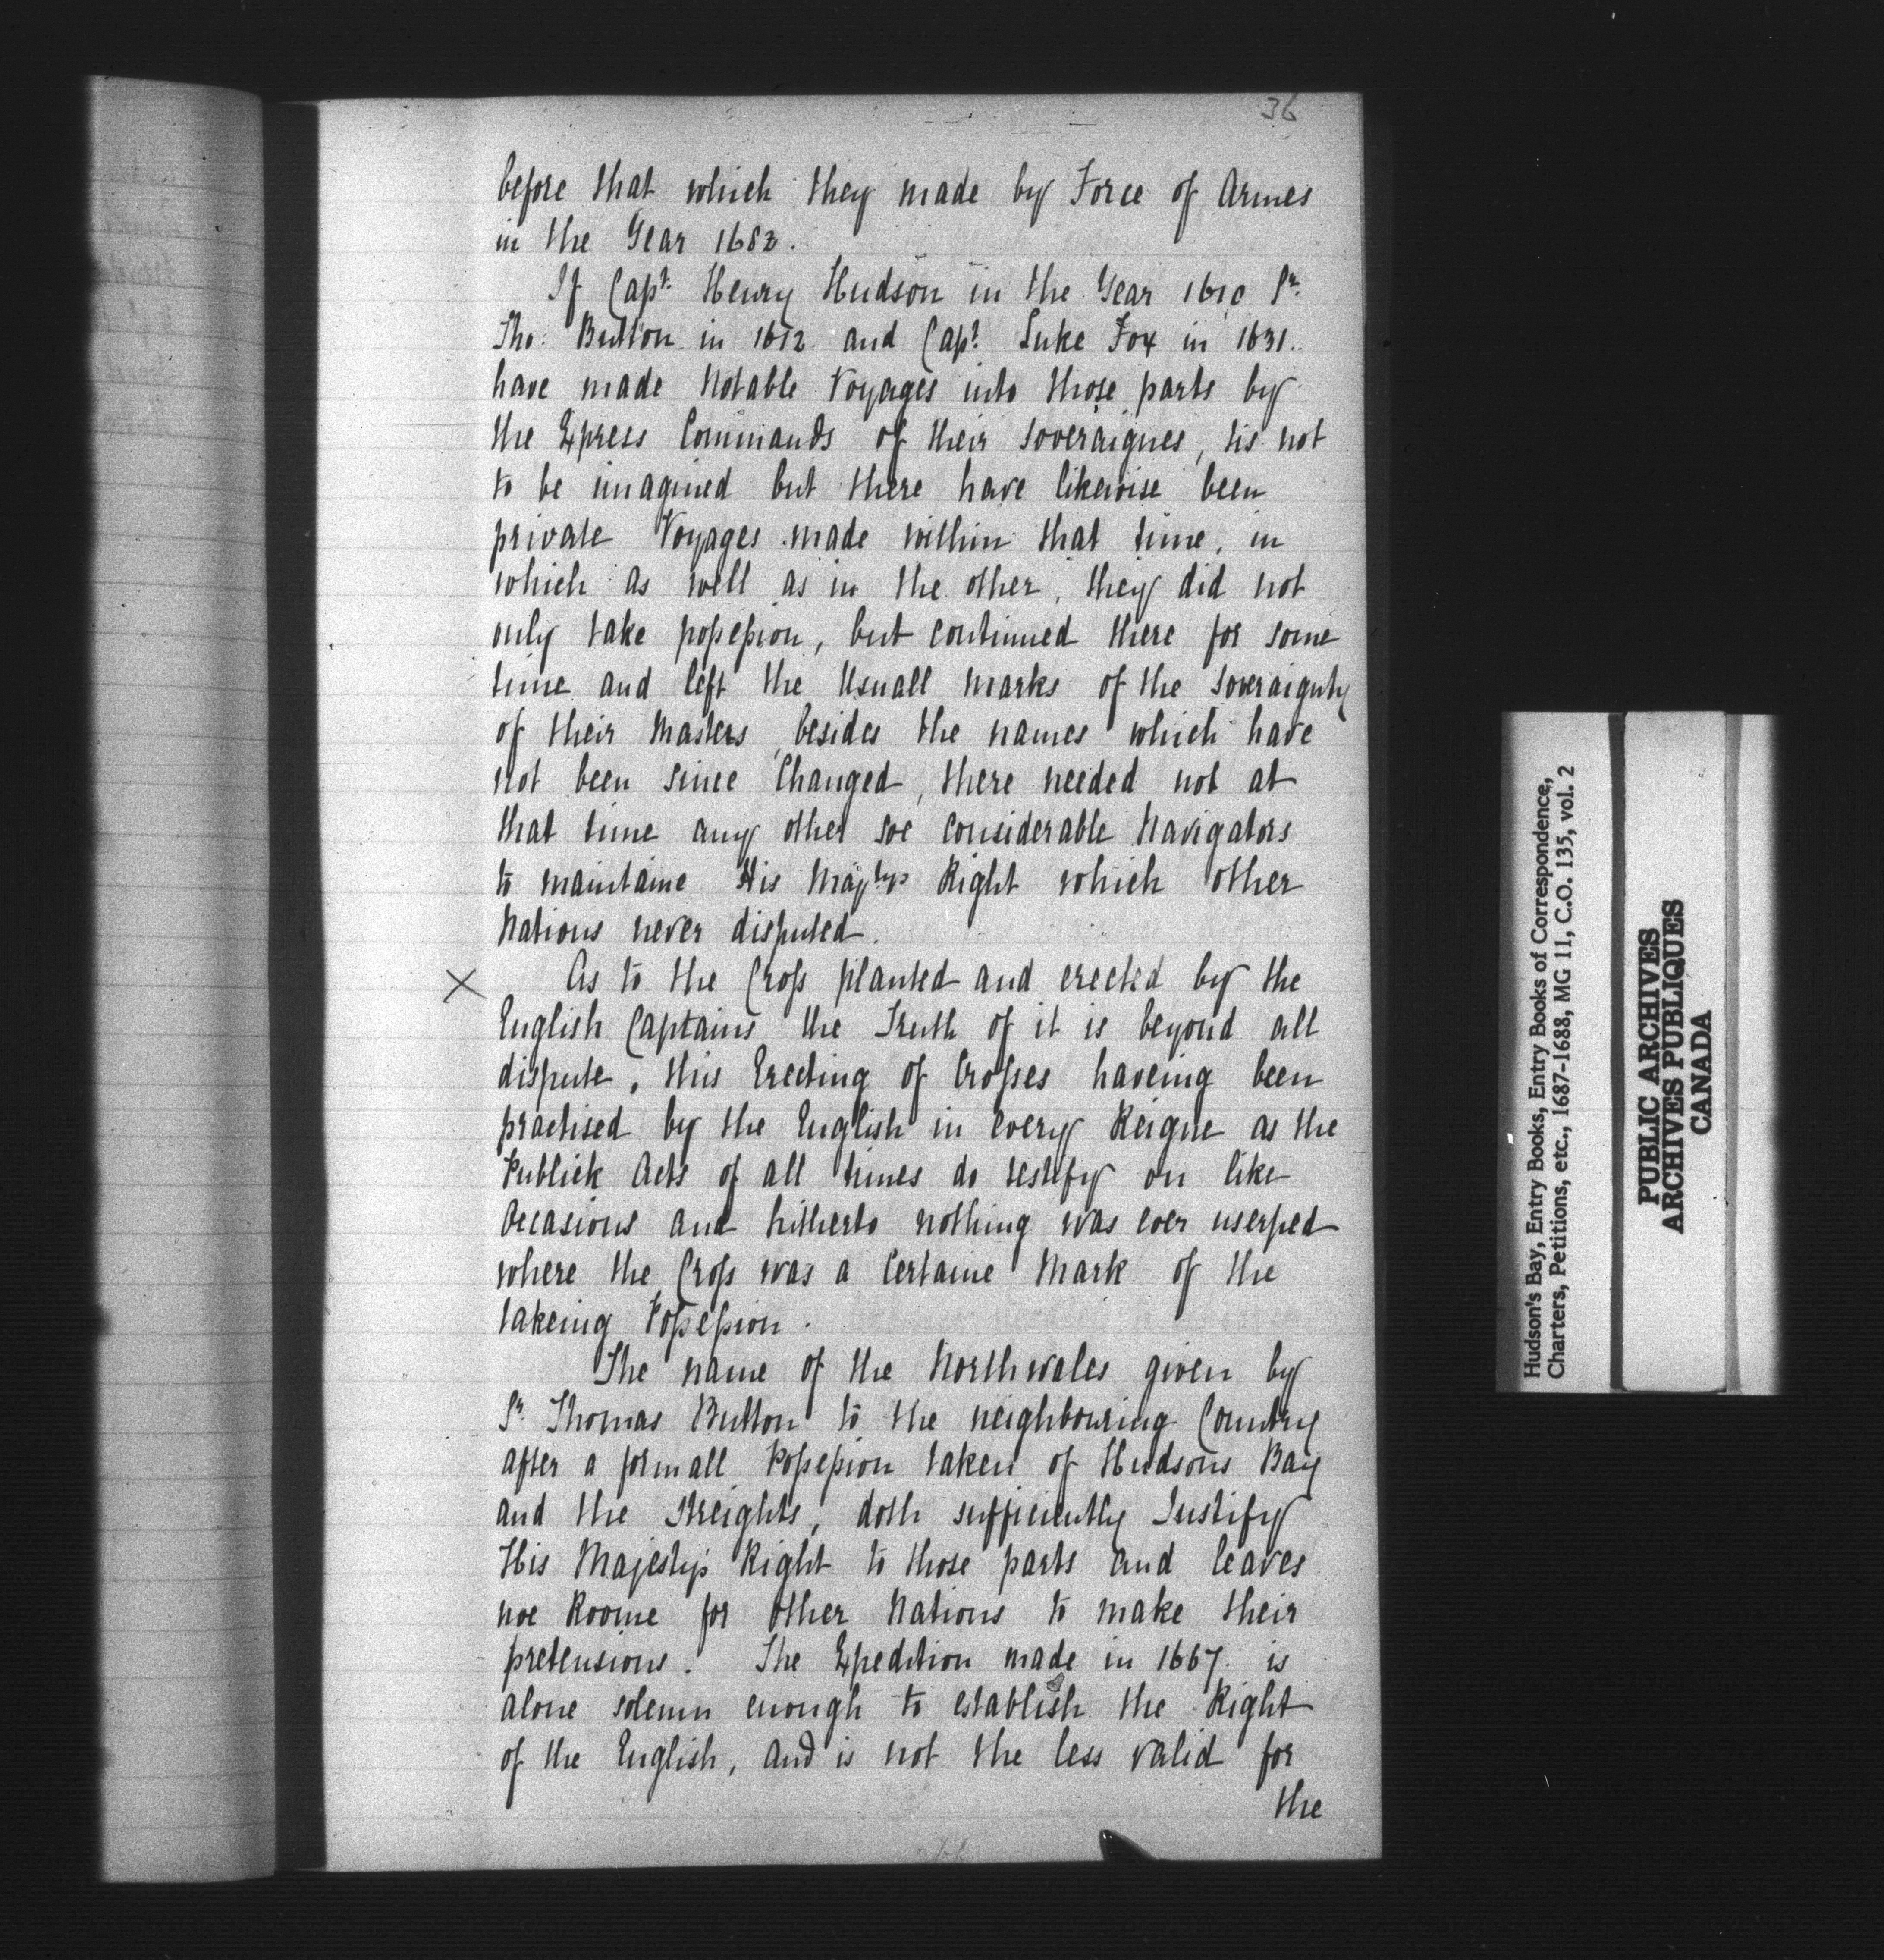 36
before that which they made by Force of Armes
in the Year 1682.
If Capt. Henry Hudson in the Year 1610 Sr.
Tho: Button in 1612 and Capt. Luke Fox in 1631.
have made Notable Voyages into those parts by
the Express Commands of their Soveraignes, tis not
to be imagined but there have likewise been
private Voyages made within that time, in
which as well as in the other, they did not
only take possession, but continued there for some
time and left the Usuall marks of the Soveraignty
of their Masters besides the names which have
not been since Changed, there needed not at
that time any other soe considerable Navigators
to maintaine His Majtys Right which other
Nations never disputed.
X As to the Cross planted and erected by the
English Captains the Truth of it is beyond all
dispute, this Erecting of Crosses haveing been
practised by the English in every Reigne as the
Publick Acts of all times do testify on like
Occasions and hitherto nothing was ever userped
where the Cross was a Certaine Mark of the
takeing Possession.
The name of the Northwales given by
Sr. Thomas Button to the neighbouring Country
after a formall Possession taken of Hudsons Bay
and the Streights, doth sufficiently Justify
His Majesty's Right to those parts and leaves
noe Roome for other Nations to make their
pretensions. The Expedition made in 1667. is
alone solemn enough to establish the Right
of the English, and is not the less valid for
the
Hudson's Bay, Entry Books, Entry Books of Correspondence,
Charters, Petitions, etc., 1687-1688, MG 11, C.O. 135, vol. 2
PUBLIC ARCHIVES
ARCHIVES PUBLIQUES
CANADA